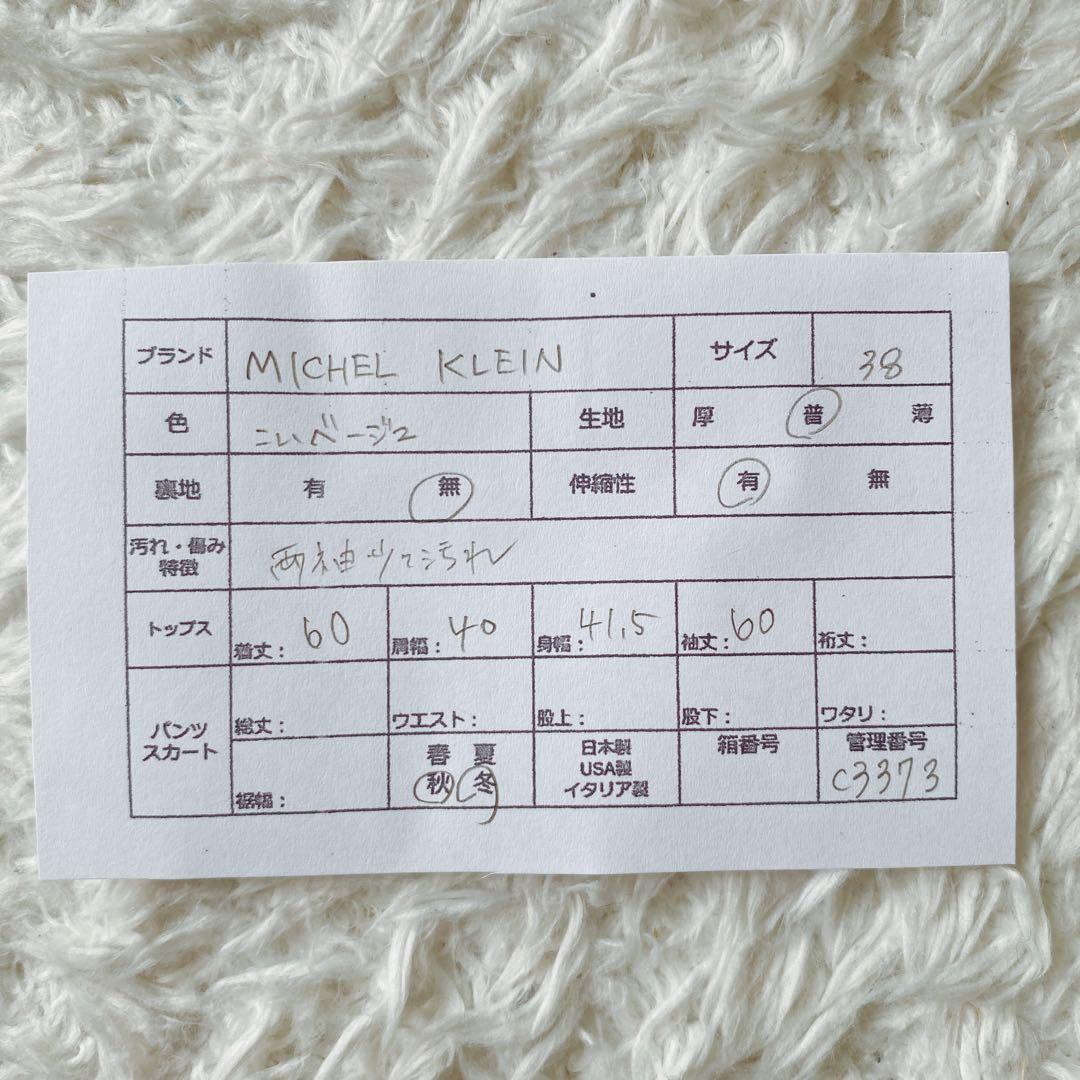 ブランド MICHEL KLEIN サイズ 38
色 こいベージュ 生地 厚 普 薄
裏地 有 無 伸縮性 有 無
汚れ・傷み 特徴 両袖少々汚れ
トップス 着丈: 60 肩幅: 40 身幅: 41.5 袖丈: 60 裄丈:
パンツ スカート 総丈: ウエスト: 股上: 股下: ワタリ:
裾幅: 春 夏 秋 冬 日本製 USA製 イタリア製 箱番号 管理番号 C3373